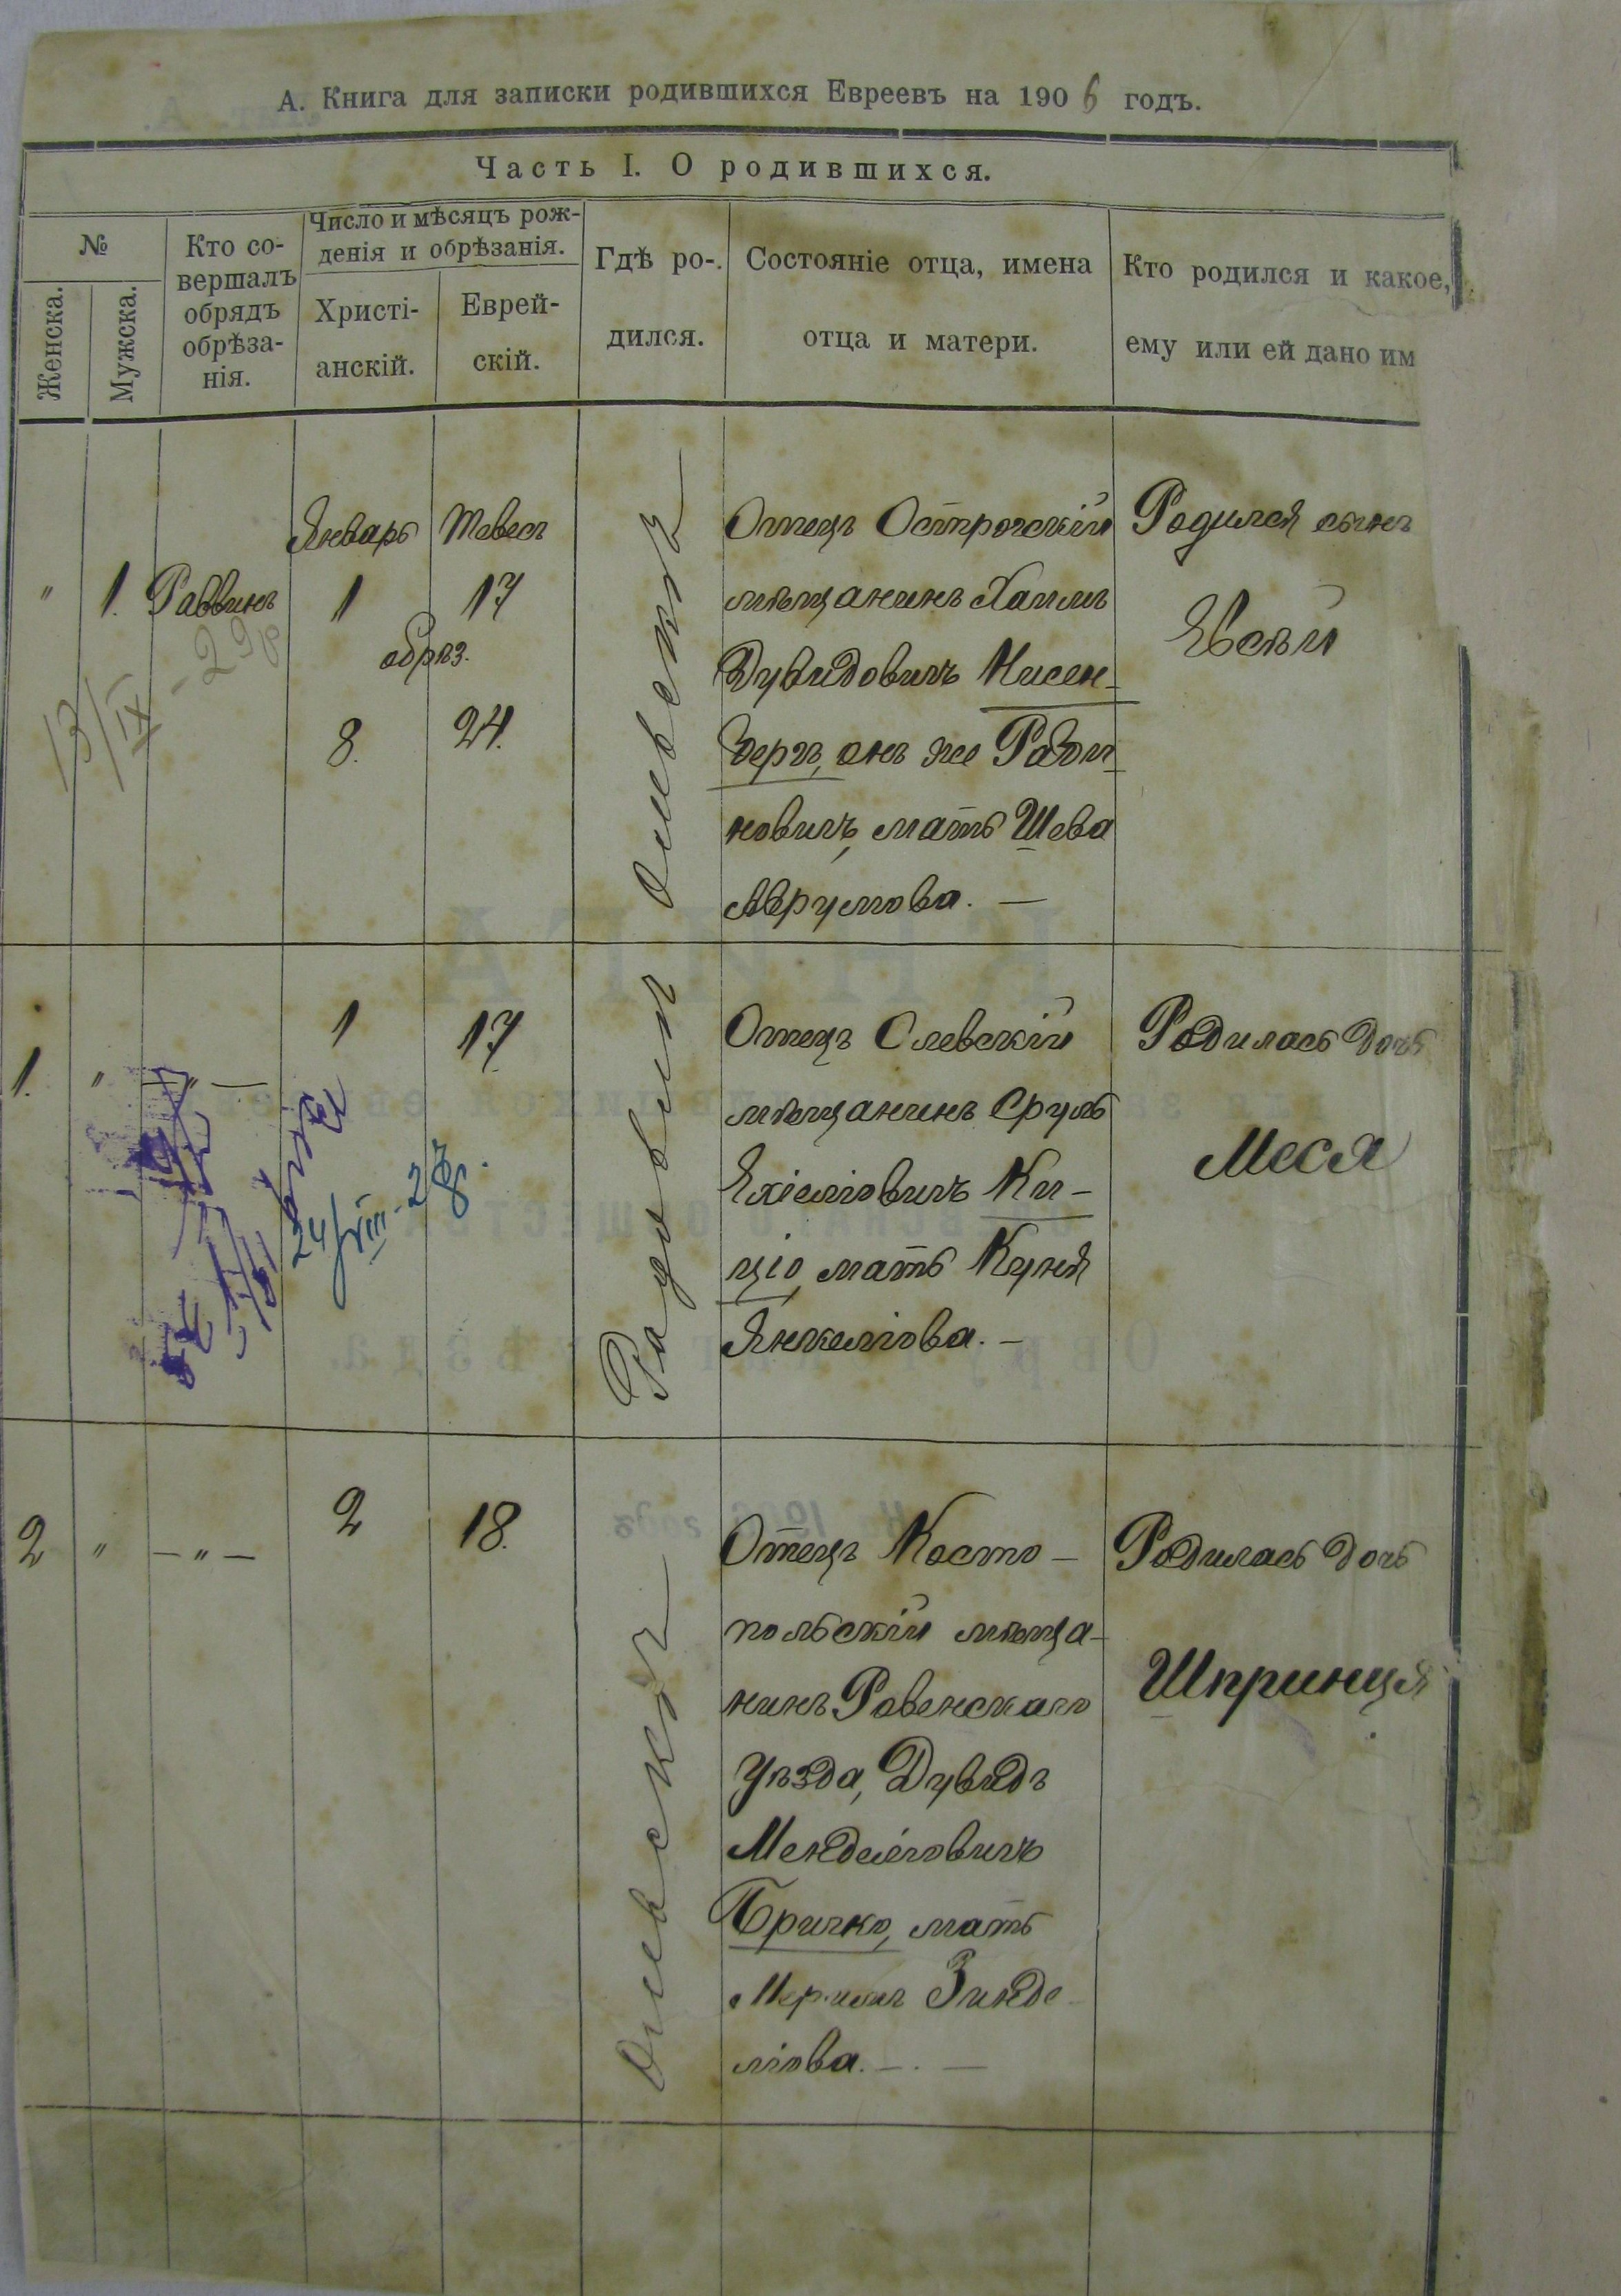 А. Книга для записки родившихся Евреевъ на 1906 годъ.
Часть I. О родившихся.
№
Женска.
Мужска.
Кто со-
вершалъ
обрядъ
обрѣза-
нія.
Число и мѣсяцъ рож-
денія и обрѣзанія.
Христі-
анскій.
Еврей-
скій.
Гдѣ ро-
дился.
Состояніе отца, имена
отца и матери.
Кто родился и какое,
ему или ей дано им
" 1. Раввинъ
Январь Тевесъ
1 17
обрѣз.
8. 24.
13/IX - 29
Олевскъ
Отецъ Острогскій
мѣщанинъ Хаимъ
Дувидовичъ Нисен-
бергъ, онъ же Рабой-
новичъ, мать Шева
Аврумова. —
Родился сынъ
Евсѣй
1. " — " —
1 17
24/VIII - 28
Отецъ Олевскій
мѣщанинъ Сруль
Ехіеліовичъ Ки-
ціо, мать Куня
Янкеліова. —
Родилась дочь
Меся
2 " — " —
2 18.
Олевскъ
Отецъ Косто-
польскій мѣща-
нинъ Ровенскаго
уѣзда, Дувидъ
Менделіовичъ
Бричко, мать
Зинде-
ліова. — . —
Родилась дочь
Шпринця